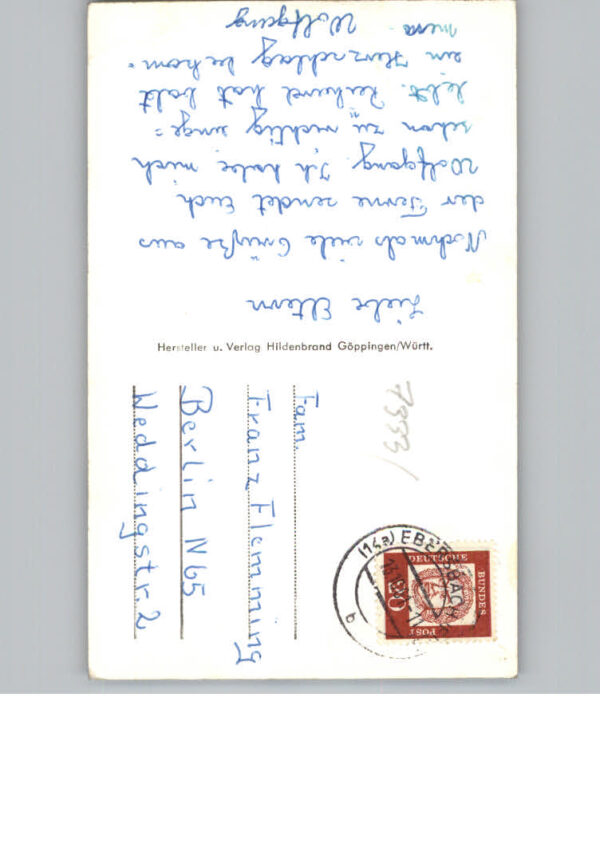 Liebe Eltern
Nochmals viele Grüße aus
der Ferne sendet Euch
Wolfgang. Ich habe mich
schon zu richtig einge=
lebt. Reihand hat bald
ein Herzschlag bekom=
men.
Wolfgang
Hersteller u. Verlag Hildenbrand Göppingen/Württ.
Fam.
Franz Flemming
Berlin N 65
Weddingstr. 2
7333/
(14a) EBERSBACH
b
DEUTSCHE
BUNDES
POST
20